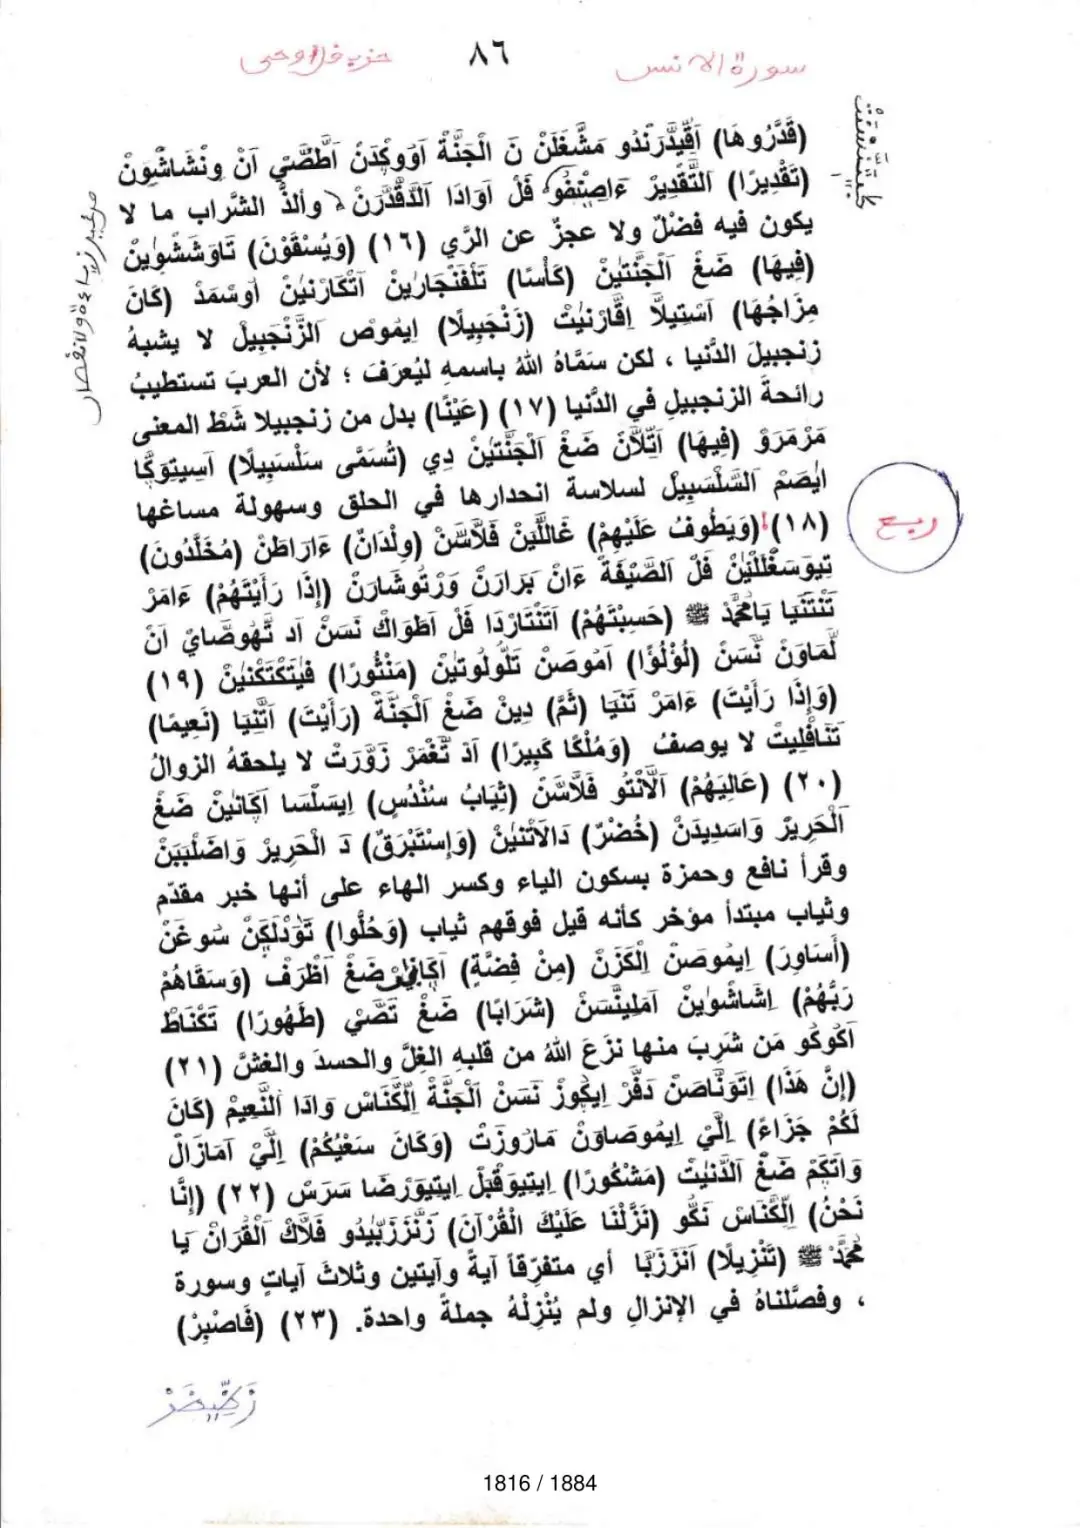 سورة الانس ٨٦ حزب قل اوحى
(قَدَّرُوهَا) اَقِّيدَّرَنْدُو مَشَّغَلَنْ نَ الْجَنَّةْ اَووكَدَنْ اَطَّصَّيْ اَنْ وِنْشَاشْوَنْ
(تَقْدِيرًا) التَّقْدِيرْ ءَاصِنْفُو فَلْ اَوَادَا الدَّقَّدَرَنْ وألذُّ الشَّراب ما لا
يكون فيه فضْلٌ ولا عجزٌ عن الرَّي (١٦) (وَيُسْقَوْنَ) تَاوَشَشْوَيْنْ
(فِيهَا) ضَغْ اَلْجَنَّتيْنْ (كَأْسًا) تَلْفَنْجَارِينْ اَتْكَارْنيْنْ اَوسْمَدْ (كَانَ
مِزَاجُهَا) اَسْتِيلاَّ اِقَّارْنيْتْ (زَنْجَبِيلًا) اِيمُوصْ اَلزَّنْجَبِيلْ لا يشبهُ
زنجبيلَ الدُّنيا ، لكن سمَّاهُ اللهُ باسمهِ ليُعرَفَ ؛ لأن العربَ تستطيبُ
رائحةَ الزنجبيلِ في الدُّنيا (١٧) (عَيْنًا) بدل من زنجبيلا شَطْ المعنى
مَرْمَرَوْ (فِيهَا) اَتِّلاَّنْ ضَغْ اَلْجَنَّتيْنْ دِي (تُسَمَّى سَلْسَبِيلًا) اَسِيتَوكَّا
ايْصَمْ السَّلْسَبِيلْ لسلاسة انحدارها في الحلق وسهولة مساغها
(١٨) (وَيَطُوفُ عَلَيْهِمْ) غَاللَّيْنْ فَلاَّسَنْ (وِلْدَانٌ) ءَارَاطَنْ (مُخَلَّدُونَ)
ربع
تِيوَسَغْلَلْنيْنْ فَلْ الصِّيفَةْ ءَانْ بَرَارَنْ وَرْتَوشَارَنْ (إِذَا رَأَيْتَهُمْ) ءَامَرْ
تَنْتَنْيَا يَامُحَمَّدْ ﷺ (حَسِبْتَهُمْ) اَتَنْتَارْدَا فَلْ اَطَوَاكْ نَسَنْ اَد تَّهُوصَّايْ اَنْ
لَّمَاوَنْ نَّسَنْ (لُؤْلُؤًا) اَمُوصَنْ تَلُّولُوتيْنْ (مَنْثُورًا) فيْتَكْتَكْنيْنْ (١٩)
(وَإِذَا رَأَيْتَ) ءَامَرْ تَنْيَا (ثَمَّ) دِينْ ضَغْ اَلْجَنَّةْ (رَأَيْتَ) اَتَّنْيَا (نَعِيمًا)
تَنَافْلِيتْ لا يوصفُ (وَمُلْكًا كَبِيرًا) اَدْ تَّغْمَرْ زَوَّرَتْ لا يلحقهُ الزوالُ
(٢٠) (عَالِيَهُمْ) اَلاَّنْتُو فَلاَّسَنْ (ثِيَابُ سُنْدُسٍ) اِيسَلْسَا اَكَّانيْنْ ضَغْ
اَلْحَرِيرْ وَاسَدِيدَنْ (خُضْرٌ) دَالاَتْنيْنْ (وَإِسْتَبْرَقٌ) دَ الْحَرِيرْ وَاضَلْبَيَنْ
وقرأ نافع وحمزة بسكون الياء وكسر الهاء على أنها خبر مقدّم
وثياب مبتدأ مؤخر كأنه قيل فوقهم ثياب (وَحُلُّوا) تَوَّدْلَكَنْ سَوغَنْ
(أَسَاوِرَ) اِيمُوصَنْ اِلْكَزَنْ (مِنْ فِضَّةٍ) اَكَّانيْنْ ضَغْ اَظْرَفْ (وَسَقَاهُمْ
رَبُّهُمْ) اِشَاشْوَيْنْ اَمَلينَّسَنْ (شَرَابًا) ضَغْ تَصَّيْ (طَهُورًا) تَكْنَاطْ
اَكُوكُو مَن شَرِبَ منها نزَعَ اللهُ من قلبهِ الغِلَّ والحسدَ والغشَّ (٢١)
(إِنَّ هَذَا) اِتَوَنَّاصَنْ دَفَّرْ اِيكُّوزْ نَسَنْ اَلْجَنَّةْ اِلْكَّنَاسْ وَادَا النَّعِيمْ (كَانَ
لَكُمْ جَزَاءً) اِلَّيْ اِيمُوصَاوَنْ مَارُوزَتْ (وَكَانَ سَعْيُكُمْ) اِلَّيْ اَمَازَالْ
وَانَكُمْ ضَغْ اَلدَّنيْتْ (مَشْكُورًا) اِيتِيوَقْبَلْ اِيتِيوَرْضَا سَرَسْ (٢٢) (إِنَّا
نَحْنُ) اِلْكَّنَاسْ نَكُّو (نَزَّلْنَا عَلَيْكَ الْقُرْآنَ) زَنْزَرْبَّيْدُو فَلاَّكْ اَلْقُرَانْ يَا
مُحَمَّدْ ﷺ (تَنْزِيلًا) اَنَزَرْبَّا أي متفرِّقاً آيةً وآيتين وثلاثَ آياتٍ وسورة
، وفصَّلناهُ في الإنزالِ ولم يُنْزِلْهُ جملةً واحدة. (٢٣) (فَاصْبِرْ)
من غير زيادة ولا نقصان
زَظِّيضَرْ
1816 / 1884